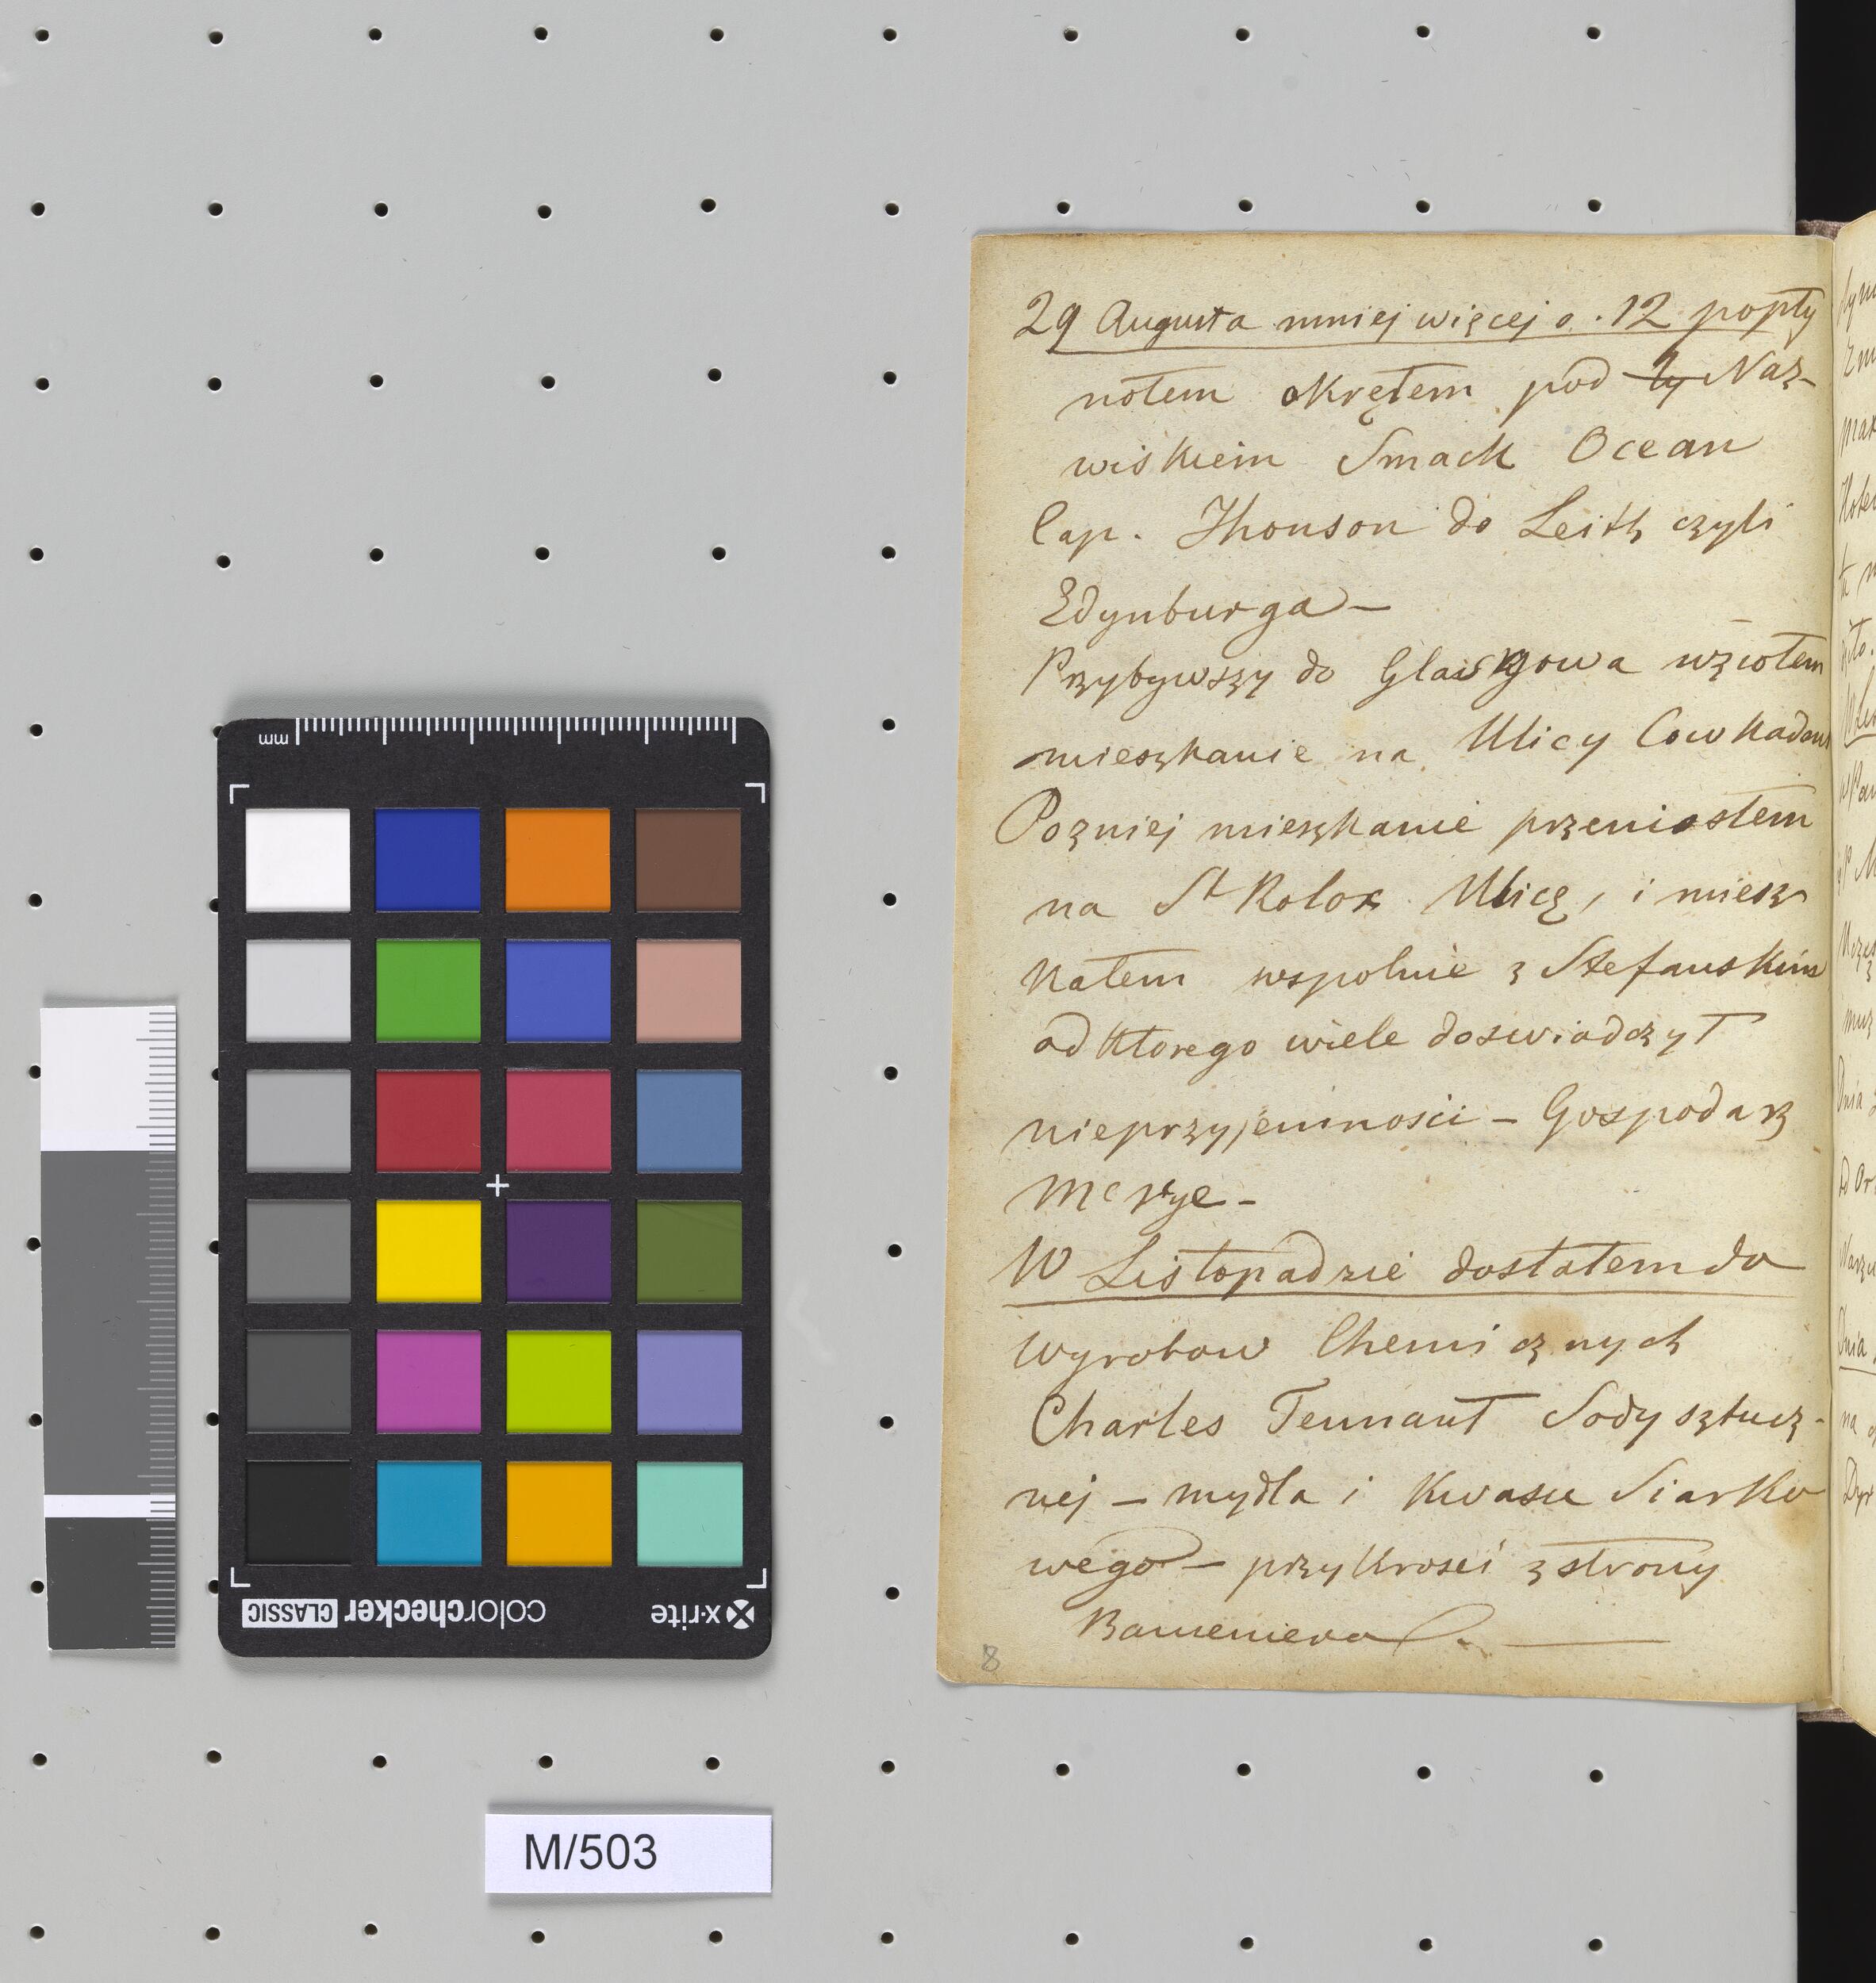 29 Augusta mniej więcej o. 12 popły
nołem okrętem pod Naz-
wiskiem Smack Ocean
Cap. Thonson do Leith czyli
Edynburga —
Przybywszy do Glasgowa wziołem
mieszkanie na Ulicy Cowkadans
Pozniej mieszkanie przeniosłem
na St Rolox Ulicę, i miesz
kałem wspolnie z Stefanskim
od ktorego wiele doswiadczył
nieprzyjemnosci — Gospodarz
W Listopadzie dostałem do
wyrobow Chemicznych
Charles Tennant Sody sztucz-
nej — mydła i Kwasu Siarko
wego — przykrosci z strony
8
mm
x·rite colorchecker CLASSIC
M/503